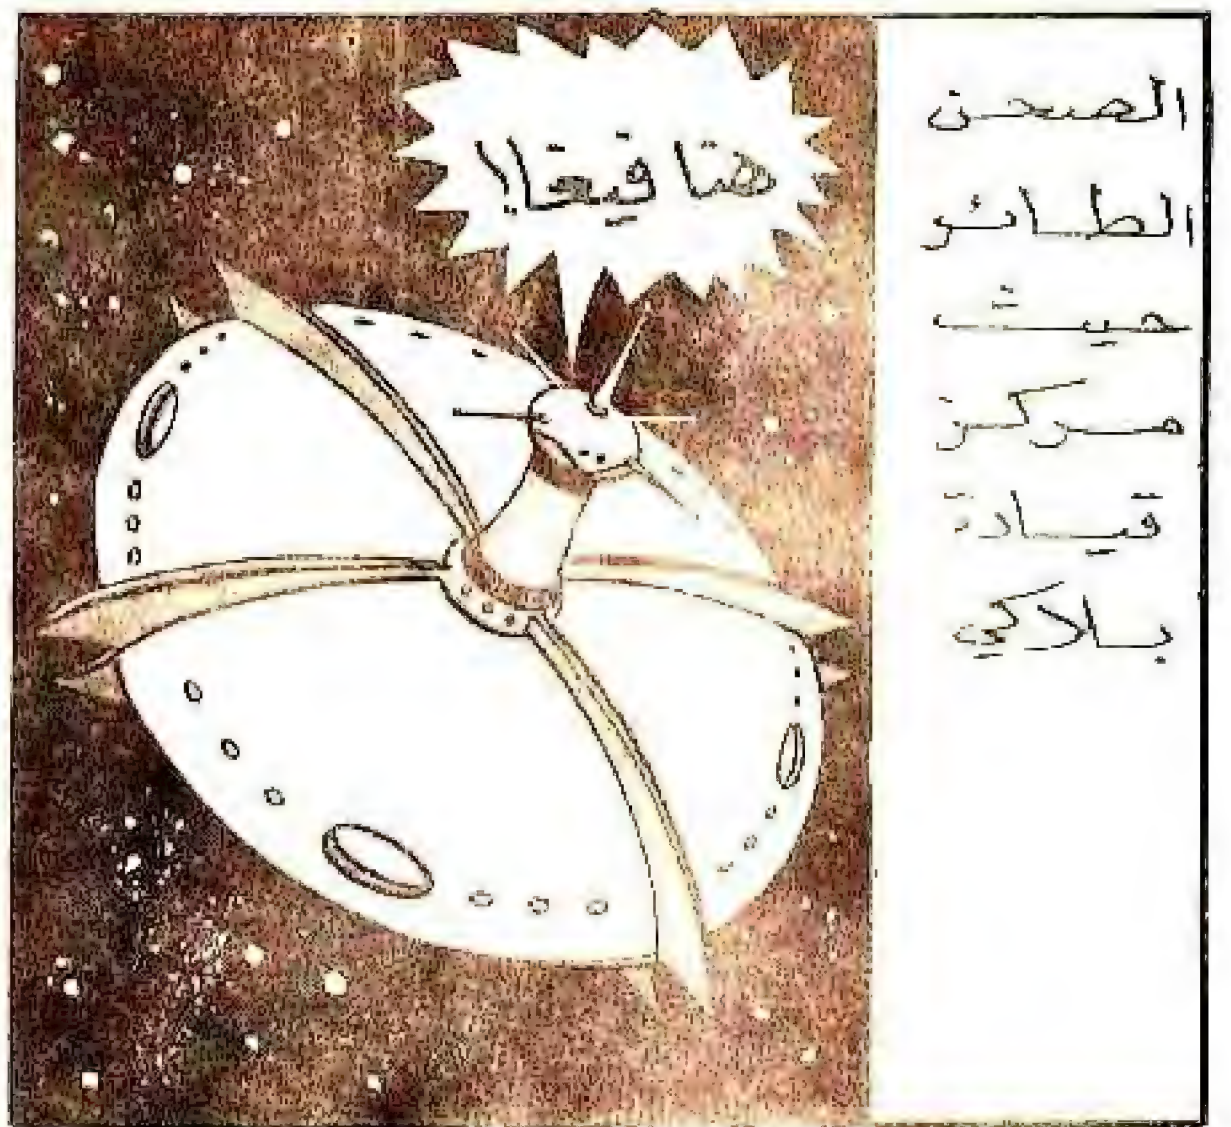 الصحن
الطائر
حيث
مركز
قيادة
بلاكي
هنا فيغا!